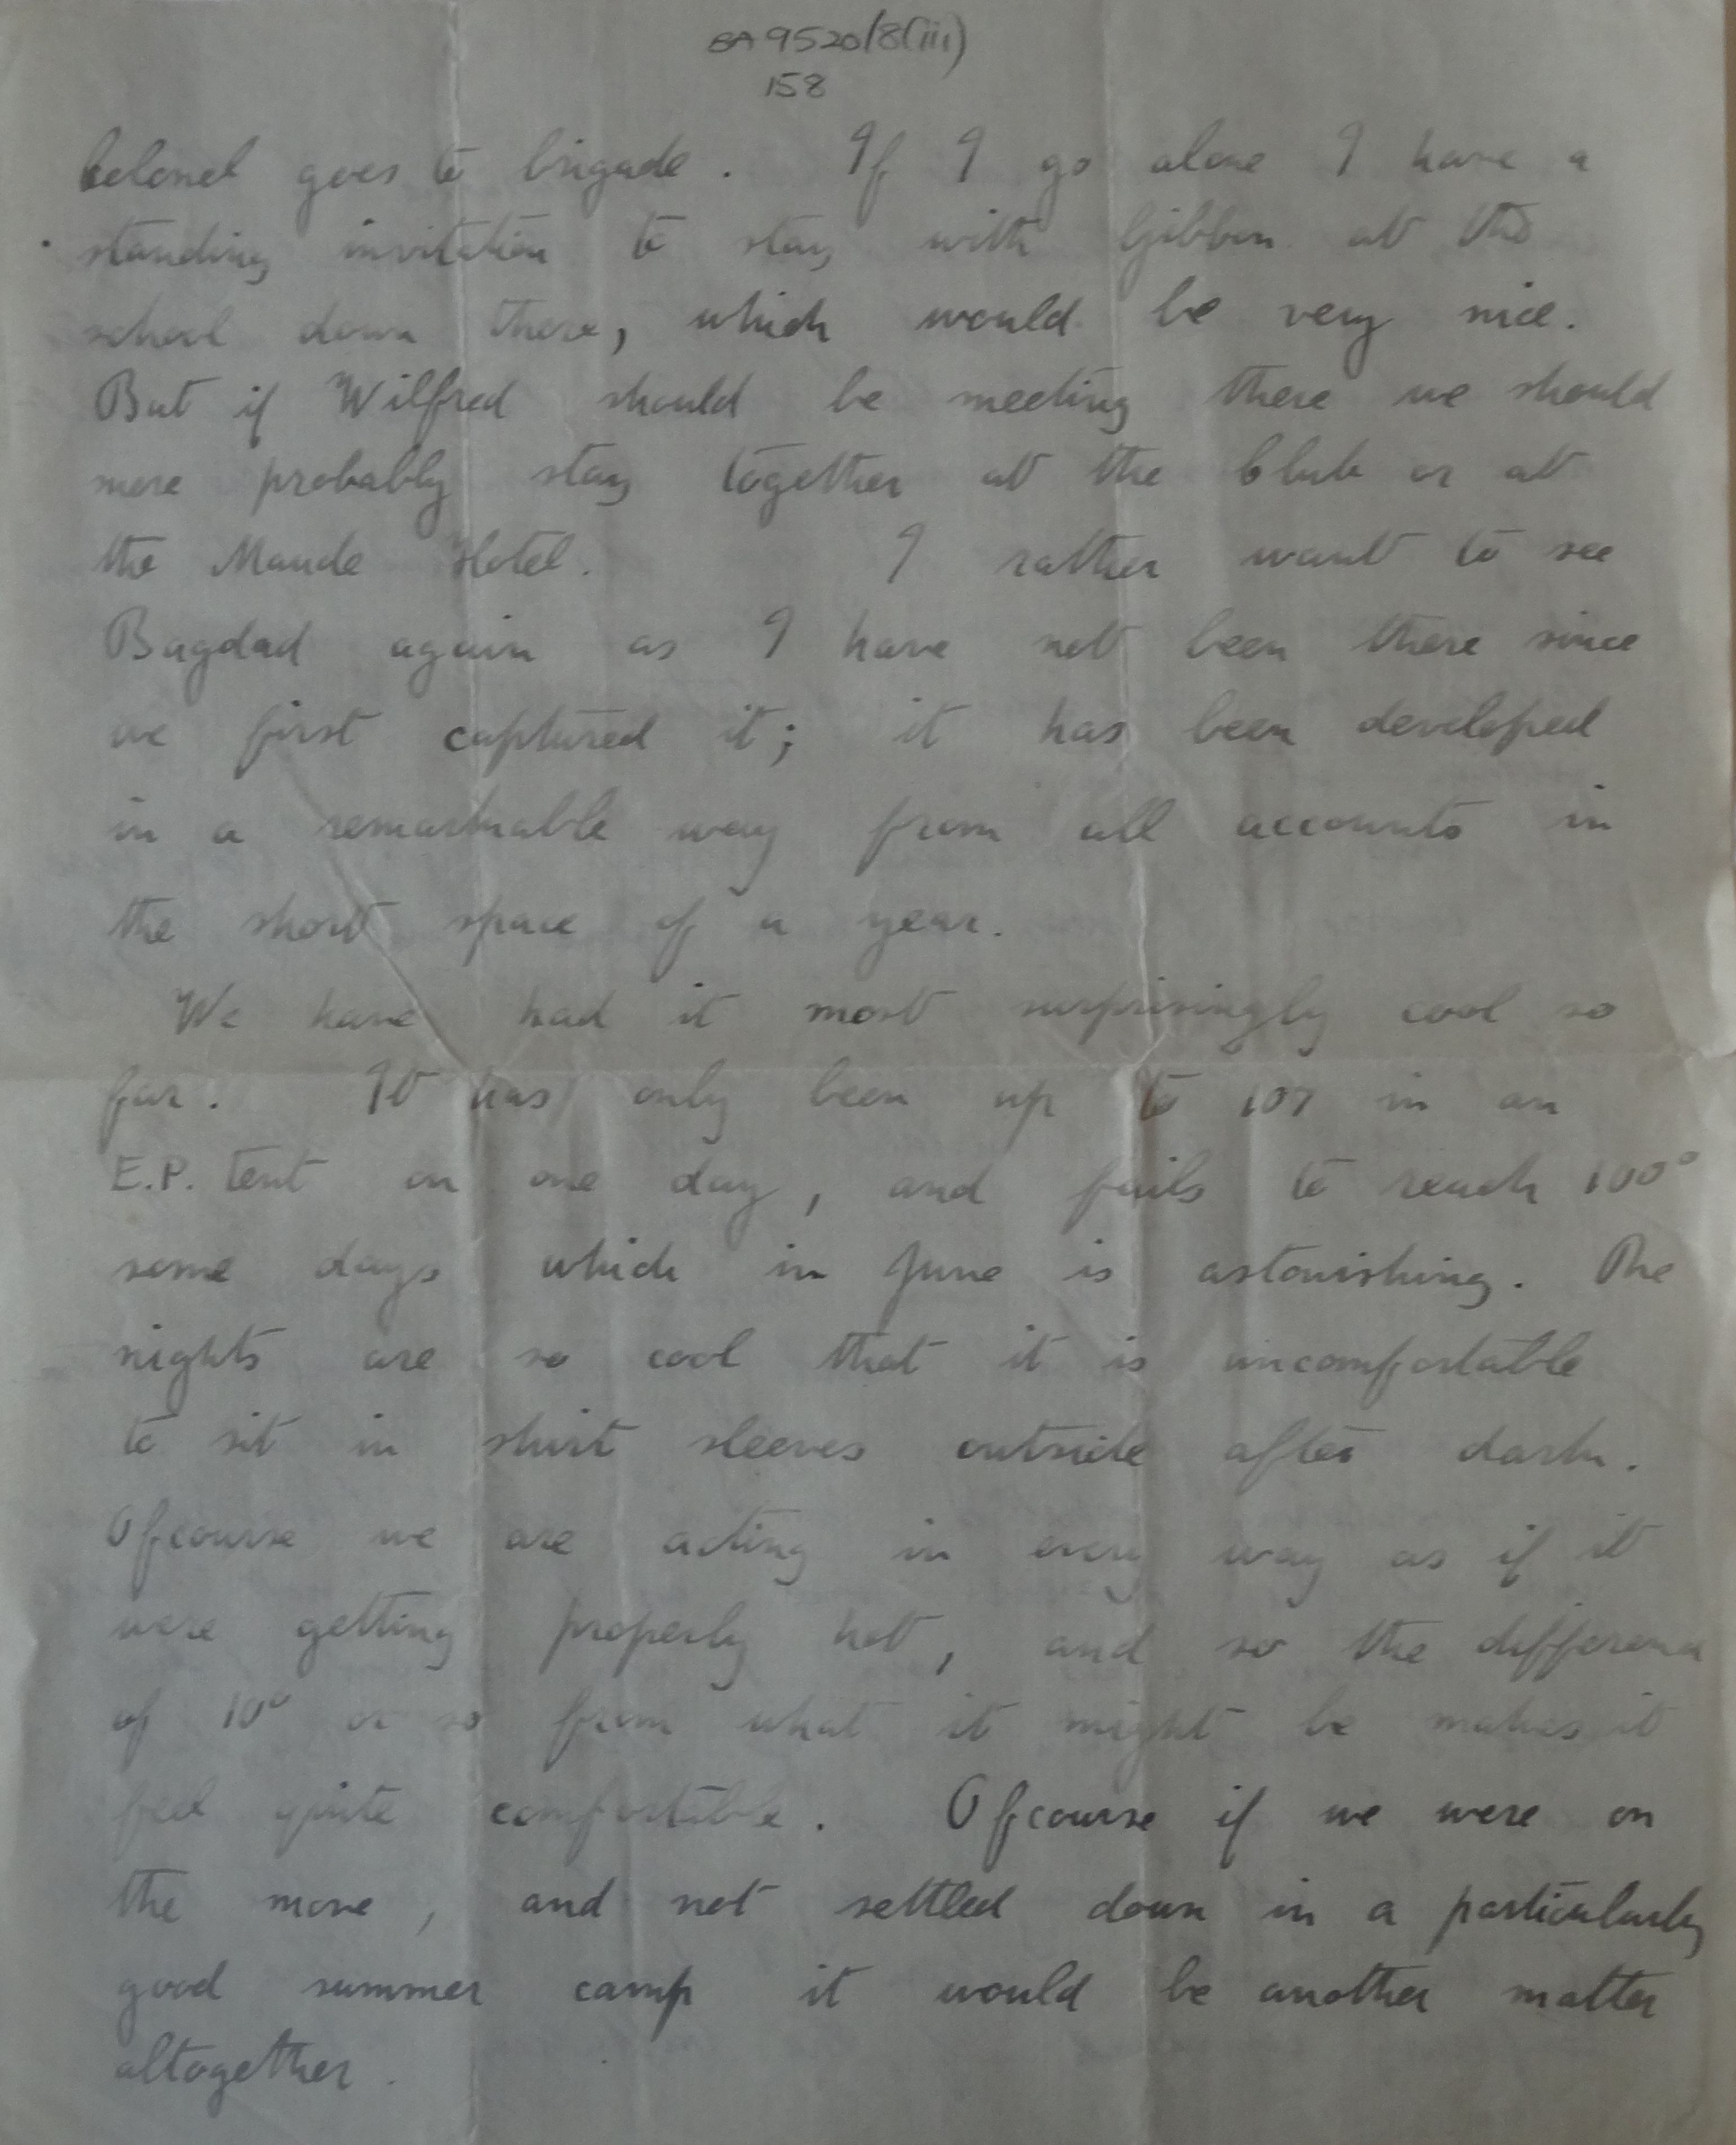 BA 9520/8(iii)
158
Colonel goes to brigade. If I go alone I have a
standing invitation to stay with Gibbon at the
school down there, which would be very nice.
But if Wilfred should be meeting there we should
more probably stay together at the Club or at
the Maude Hotel. I rather want to see
Bagdad again as I have not been there since
we first captured it; it has been developed
in a remarkable way from all accounts in
the short space of a year.
We have had it most surprisingly cool so
far. It has only been up to 107 in an
E.P. tent on one day, and fails to reach 100°
some days which in June is astonishing. The
nights are so cool that it is uncomfortable
to sit in shirt sleeves outside after dark.
Ofcourse we are acting in every way as if it
were getting properly hot, and so the difference
of 10° or so from what it might be makes it
feel quite comfortable. Ofcourse if we were on
the move, and not settled down in a particularly
good summer camp it would be another matter
altogether.